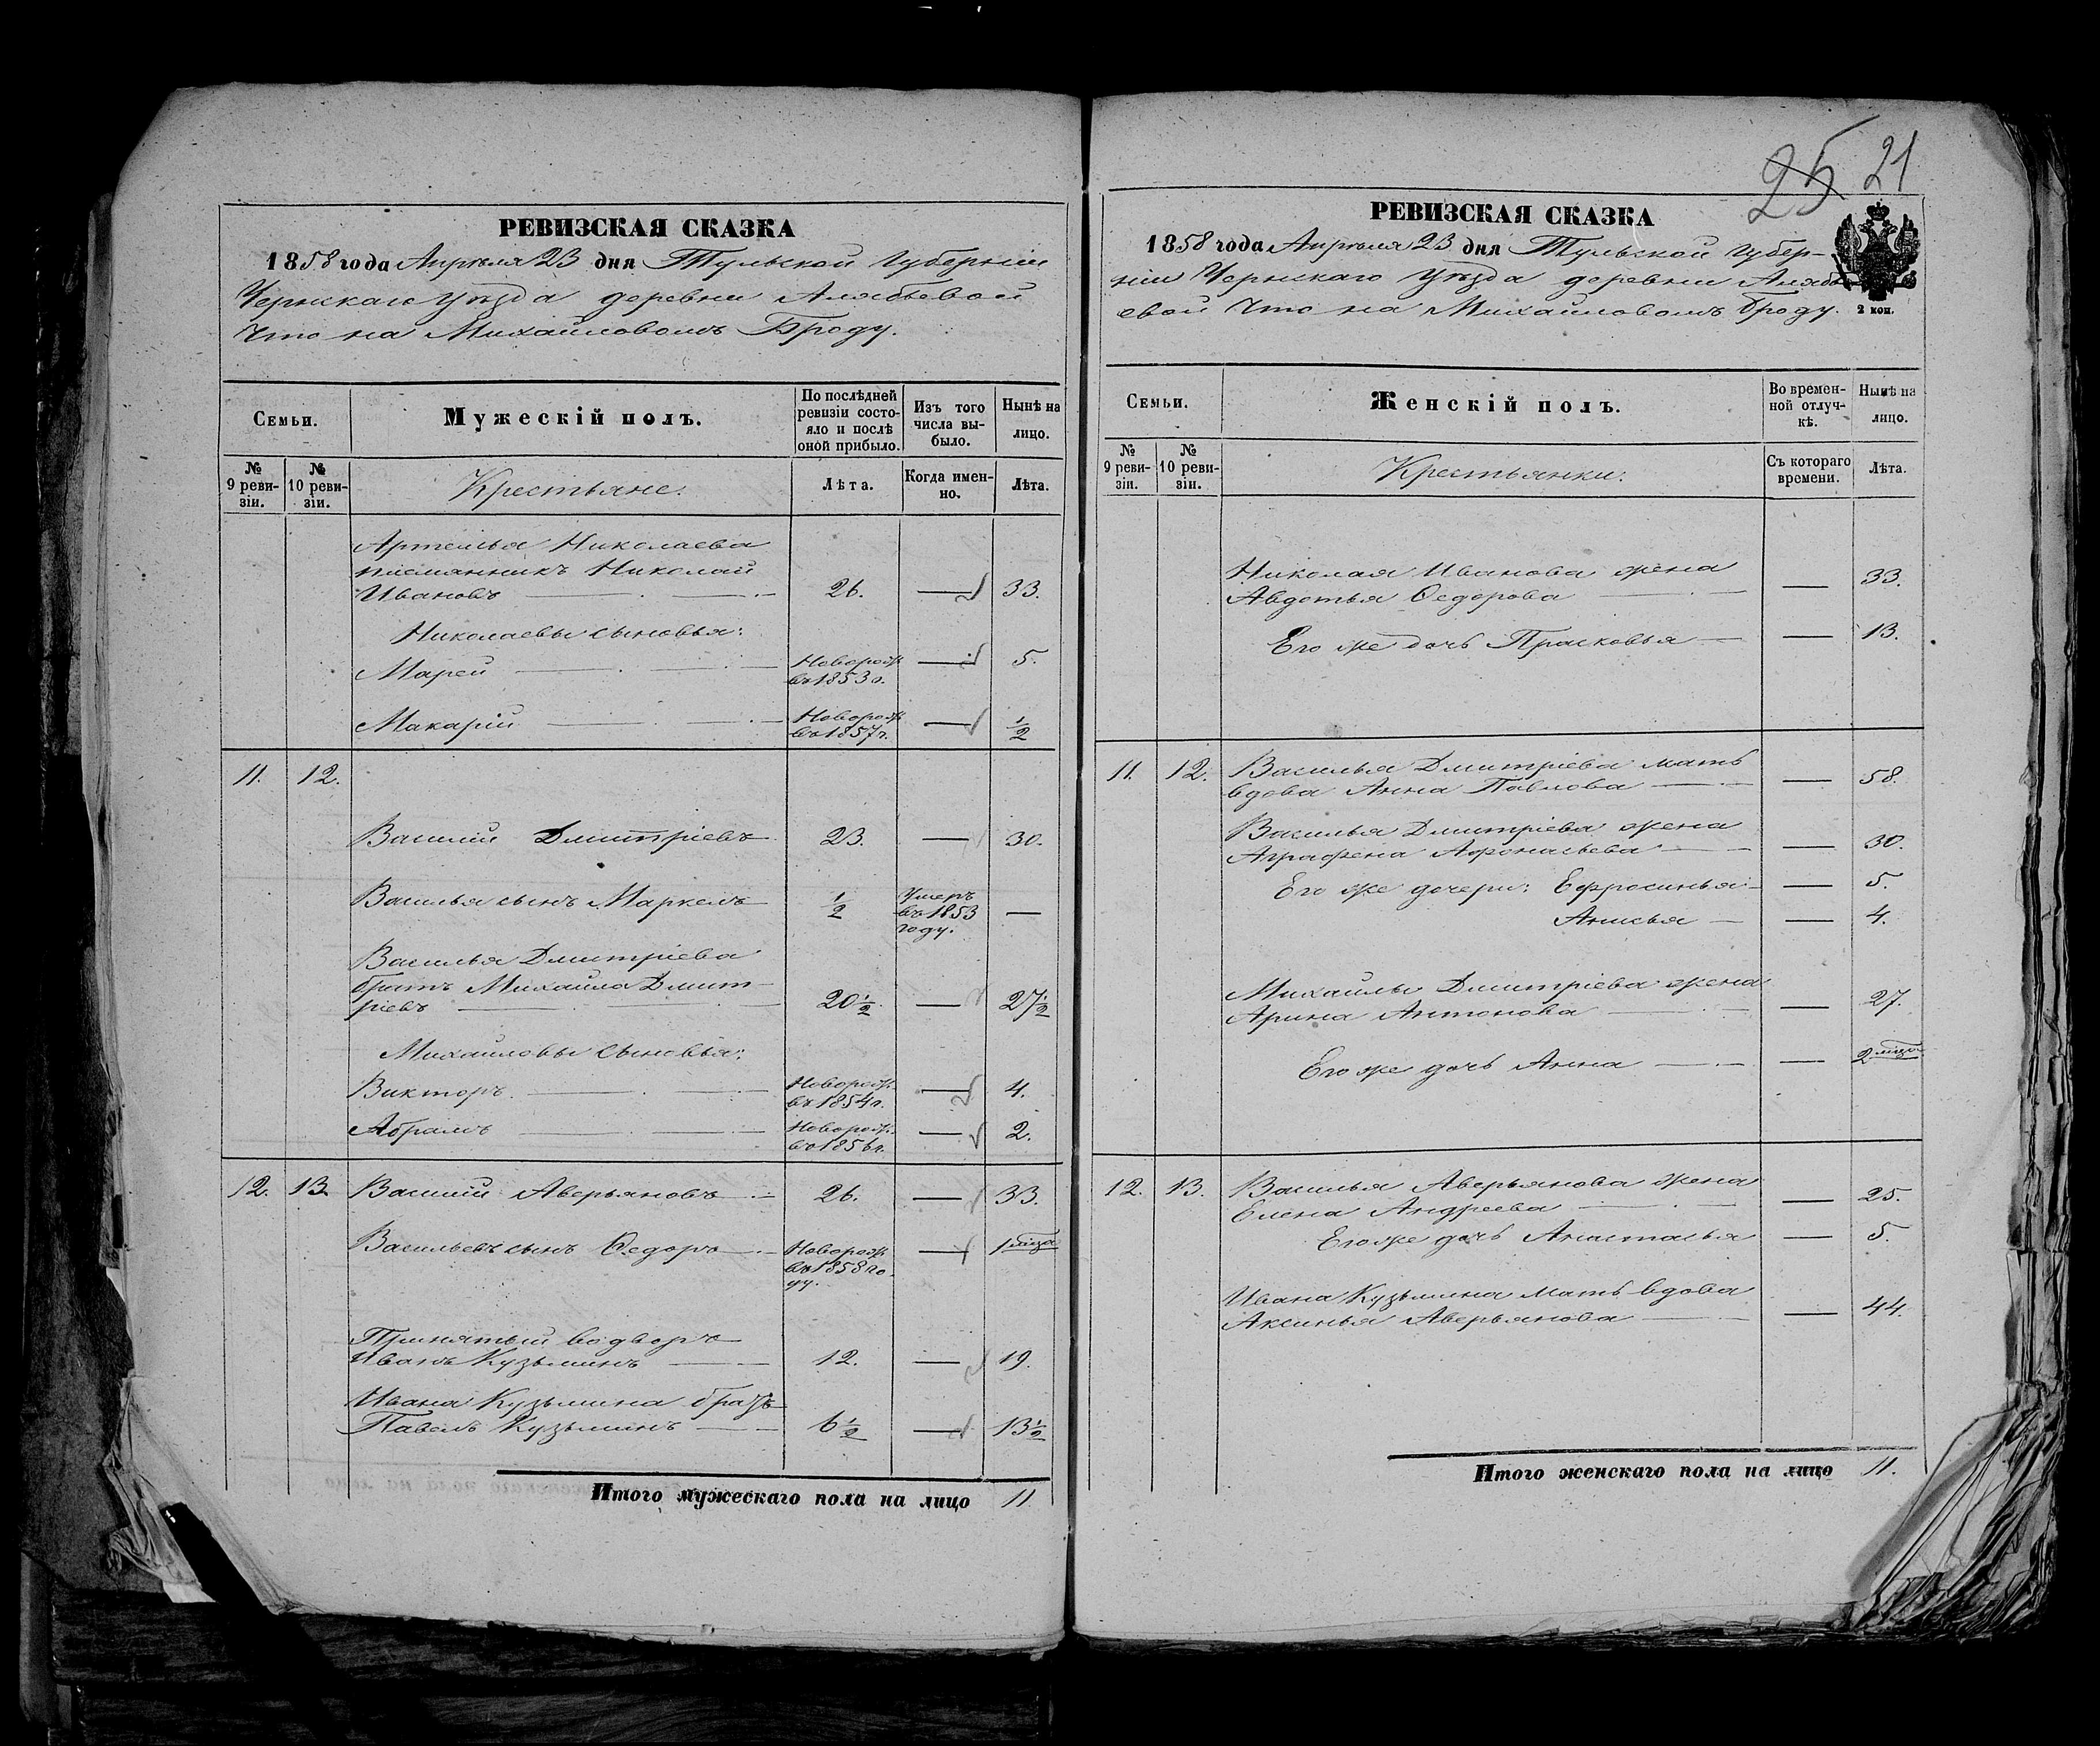 РЕВИЗСКАЯ СКАЗКА
1858 года Апрѣля 23 дня Тульской Губерніи
Чернскаго Уѣзда деревни Алябьевой
Что на Михайловомъ Броду.
Семьи.
Мужескій полъ.
По послѣдней
ревизіи состо-
яло и послѣ
оной прибыло.
Изъ того
числа вы-
было.
Нынѣ на
лицо.
№
9 реви-
зіи.
№
10 реви-
зіи.
Крестьяне.
Лѣта.
Когда имен-
но.
Лѣта.
Артемья Николаева
племянникъ Николай
Ивановъ 26. — 33.
Николаевы сыновья:
Марей Новорож. — 5.
въ 1853 г.
Макарій Новорож. — ½
въ 1857 г.
11. 12.
Василий Дмитріевъ 23. — 30.
Василья сынъ Маркелъ ½ Умеръ —
въ 1853
году.
Василья Дмитріева
братъ Михайла Дмит-
ріевъ 20½ — 27½
Михайловы сыновья:
Викторъ. Новорож. — 4.
въ 1854 г.
Абрамъ Новорож. — 2.
въ 1856 г.
12. 13. Василий Аверьяновъ 26. — 33.
Васильевъ сынъ Ѳедоръ Новорож. — 1 мѣца
въ 1858 го-
ду.
Принятый во дворъ
Иванъ Кузьминъ 12. — 19.
Ивана Кузьмина братъ
Павелъ Кузьминъ 6½ — 13½
Итого мужескаго пола на лицо 11.
25 21
РЕВИЗСКАЯ СКАЗКА
1858 года Апрѣля 23 дня Тульской Губер-
ніи Чернскаго Уѣзда деревни Алябь-
евой Что на Михайловомъ Броду.
2 коп.
Семьи.
Женскій полъ.
Во времен-
ной отлуч-
кѣ.
Нынѣ на
лицо.
№
9 реви-
зіи.
№
10 реви-
зіи.
Крестьянки.
Съ котораго
времени.
Лѣта.
Николая Иванова жена
Авдотья Ѳедорова — 33.
Его же дочь Прасковья — 13.
11. 12. Василья Дмитріева мать
вдова Анна Павлова — 58.
Василья Дмитріева жена
Аграфена Афонасьева — 30.
Его же дочери: Ефросинья — 5.
Анисья — 4.
Михайлы Дмитріева жена
Арина Антонова — 27.
Его же дочь Анна — 2 мѣца
12. 13. Василья Аверьянова жена
Елена Андреева — 25.
Его же дочь Анастасья — 5.
Ивана Кузьмина мать вдова
Аксинья Аверьянова — 44.
Итого женскаго пола на лицо 11.